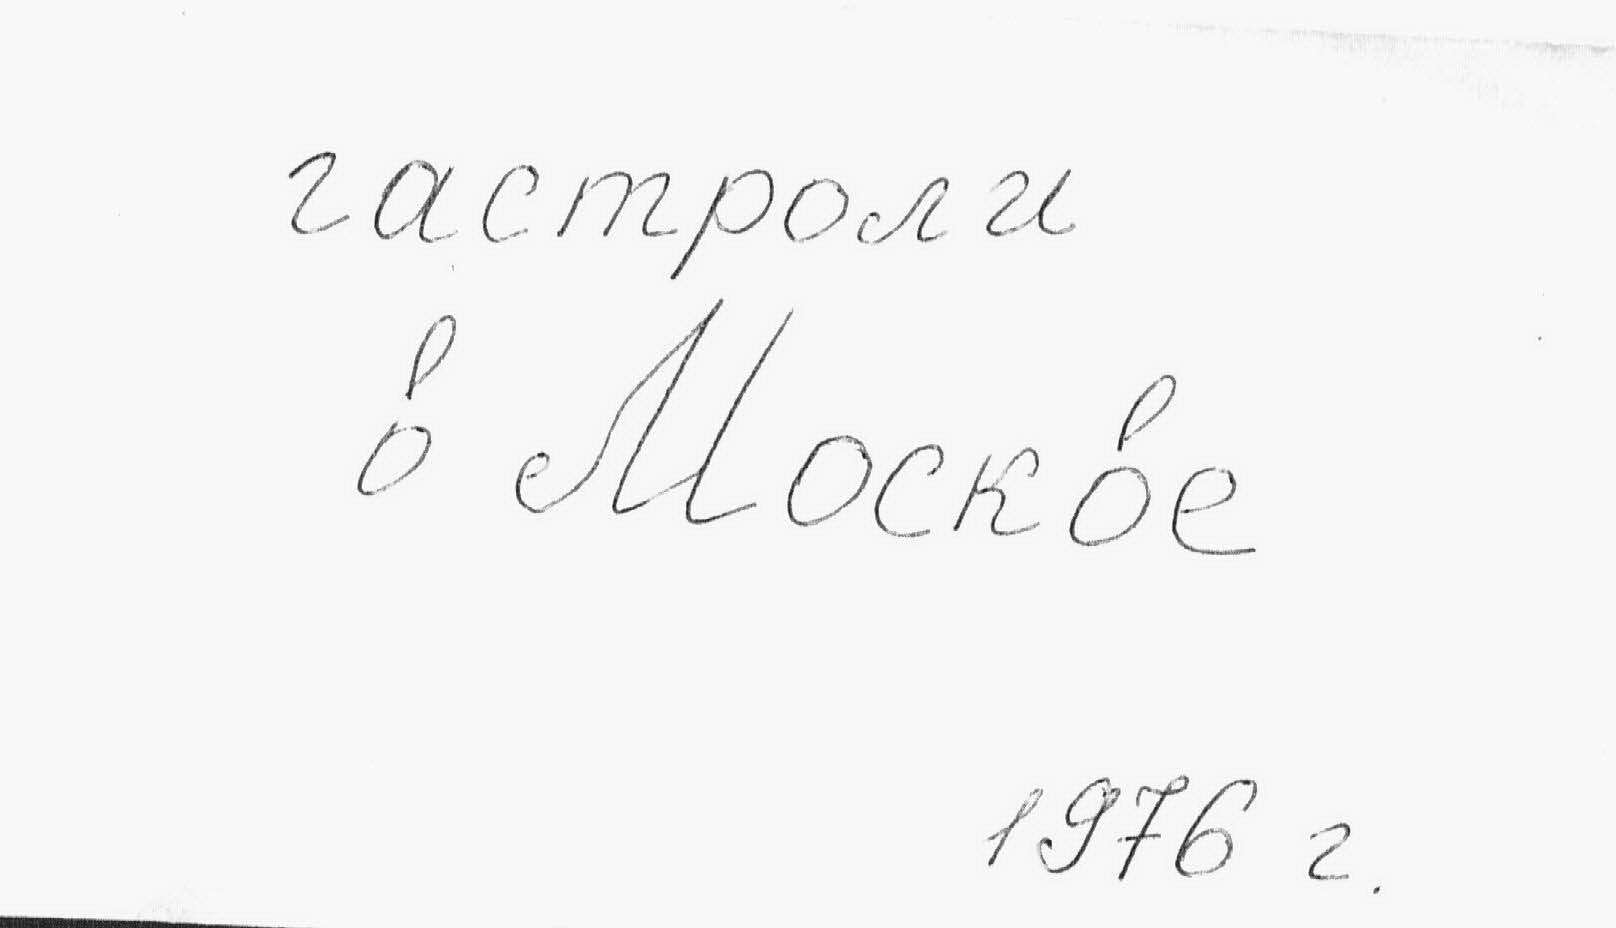 гастроли
в Москве
1976 г.